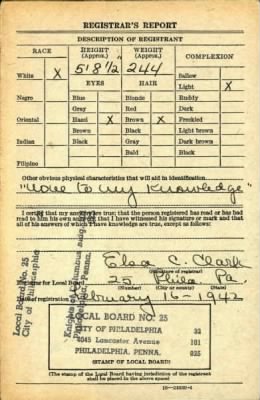 REGISTRAR'S REPORT
DESCRIPTION OF REGISTRANT
RACE HEIGHT (Approx.) WEIGHT (Approx.) COMPLEXION
White X 5' 8 1/2 244 Sallow
EYES HAIR Light X
Negro Blue Blonde Ruddy
Gray Red Dark
Oriental Hazel X Brown X Freckled
Brown Black Light brown
Indian Black Gray Dark brown
Bald Black
Filipino
Other obvious physical characteristics that will aid in identification
"None to my Knowledge"
I certify that my answers are true; that the person registered has read or has had
read to him his own answers; that I have witnessed his signature or mark and that
all of his answers of which I have knowledge are true, except as follows:
Elsa C. Clark
(Signature of registrar)
Registrar for Local Board 25 Phila. Pa.
(Number) (City or county) (State)
Date of registration February 16-1942
Local Board No. 25
City of Philadelphia
Philadelphia, Penna.
LOCAL BOARD NO. 25
CITY OF PHILADELPHIA 32
4045 Lancaster Avenue 101
PHILADELPHIA, PENNA. 025
(STAMP OF LOCAL BOARD)
(The stamp of the Local Board having jurisdiction of the registrant